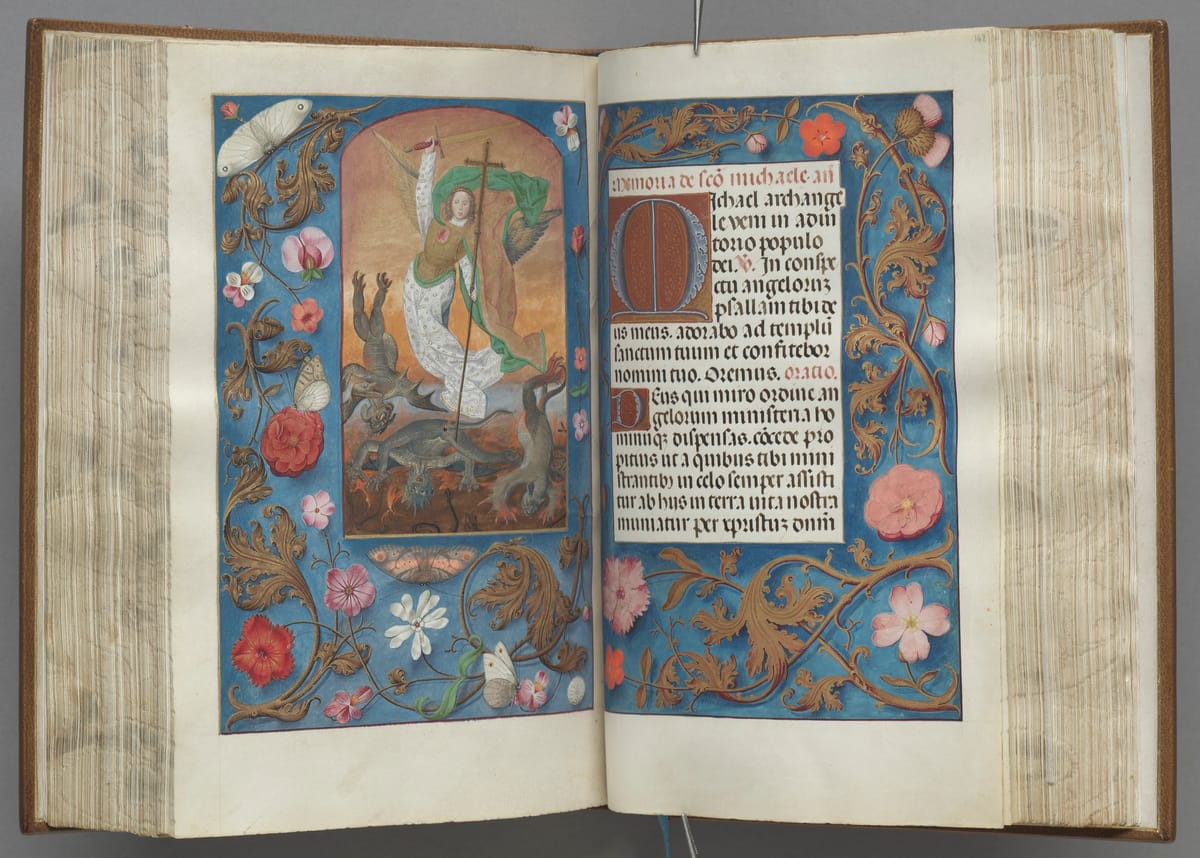 Memoria de scō michaele. añ
Michael archange
le veni in adiu
torio populo
dei. ℣. In conspe
ctu angelorum
psallam tibi de
us meus. adorabo ad templū
sanctum tuum et confitebor
nomini tuo. Oremus. oratio.
Deus qui miro ordine an
gelorum ministeria ho
minūqꝫ dispensas. cōcede pro
pitius ut a quibus tibi mini
strantibꝫ in celo semper assisti
tur ab hiis in terra vita nostra
muniatur per xpristuꝫ dnm̄